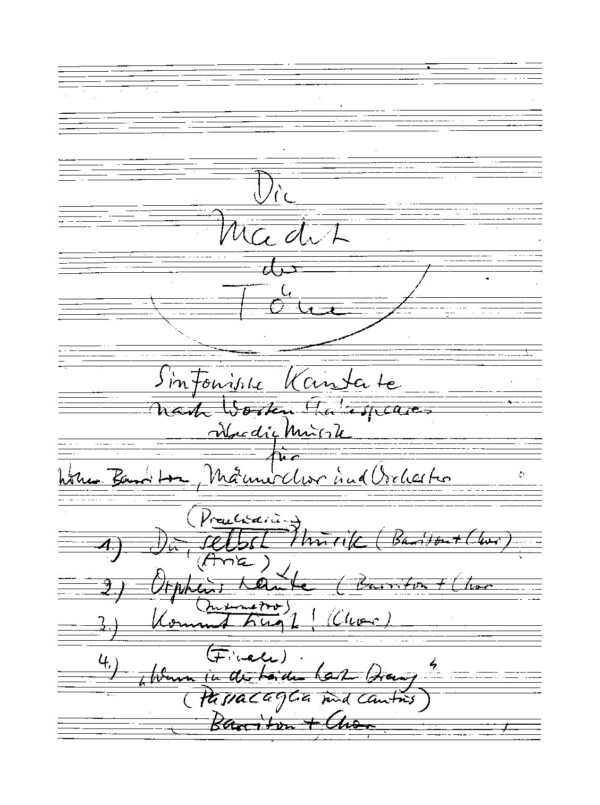 Die
Macht
der
Töne
Sinfonische Kantate
nach Worten Shakespeares
über die Musik
für
hohen Bariton, Männerchor und Orchester
(Praeludium)
1.) Du, selbst Musik (Bariton + Chor)
(Aria)
2.) Orpheus Laute (Bariton + Chor
(Intermezzo)
3.) Kommt singt! (Chor)
(Finale)
4.) „Wenn in der Leiden Drang"
(Passacaglia und cantus)
Bariton + Chor